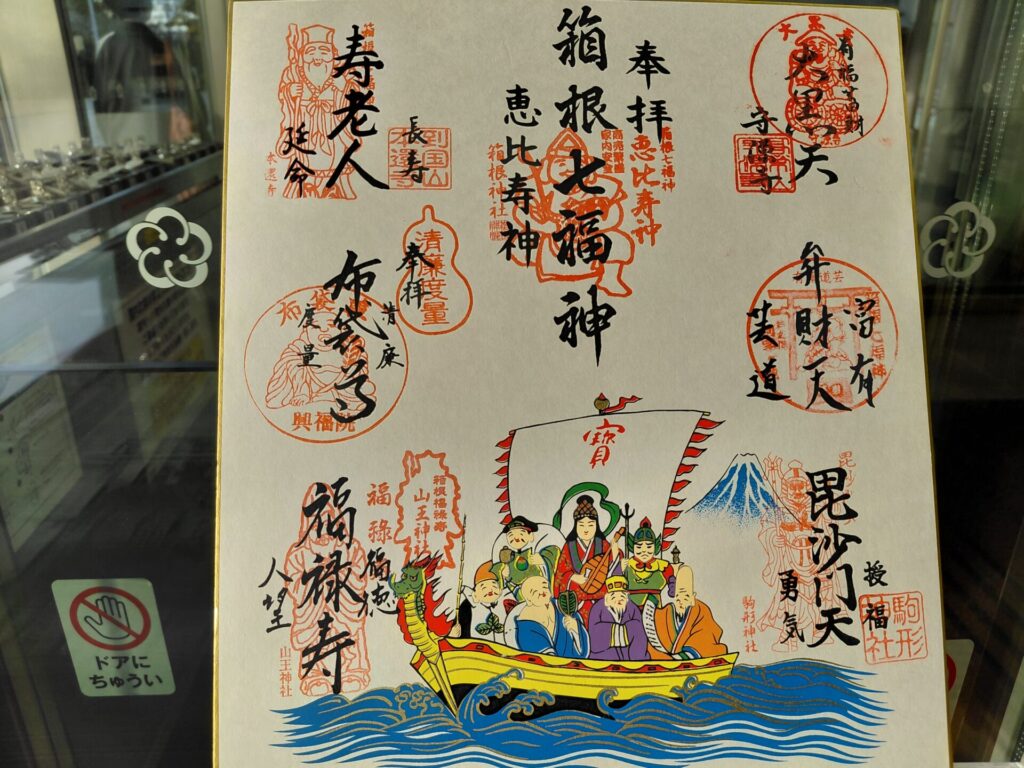 奉拝
箱根七福神
恵比寿神
箱根七福神
恵比寿神
商売繁盛
家内安全
箱根神社
大黒天
守源寺
有福蓄財
弁財天
富有
芸道
毘沙門天
授福
勇気
駒形神社
駒形
神社
寿老人
長寿
延命
本還寺
布袋尊
奉拝
清廉
度量
清廉度量
布袋
興福院
福禄寿
福徳
人望
箱根福禄寿
山王神社
福禄
山王神社
寶
ドアに
ちゅうい